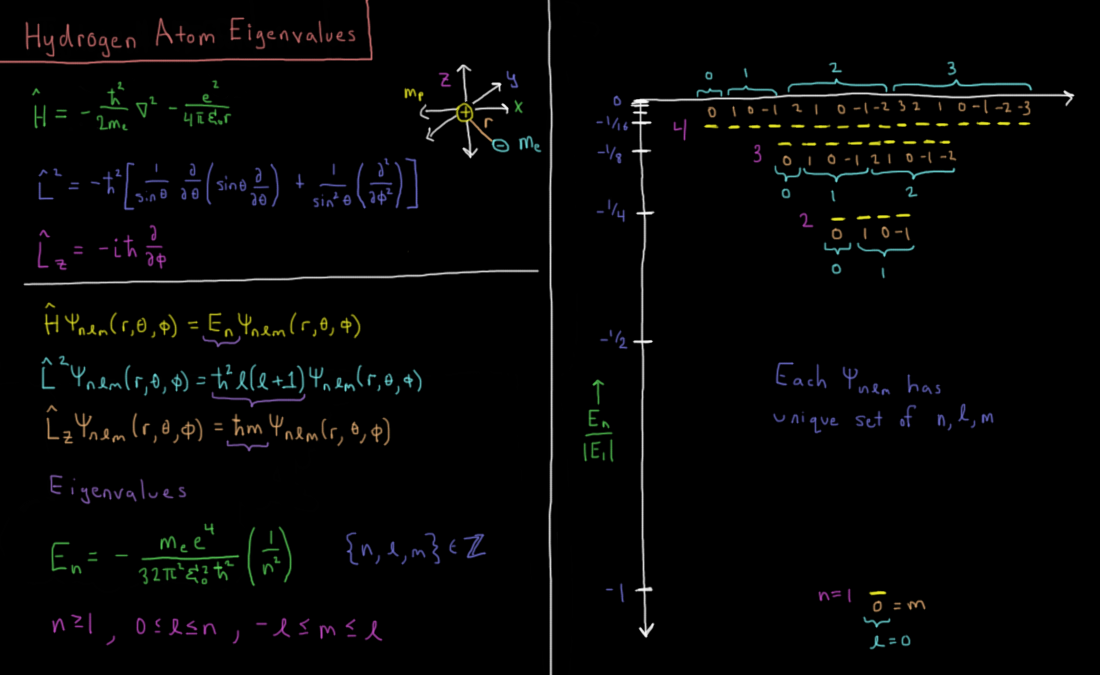 Hydrogen Atom Eigenvalues
Ĥ = - ħ²/2mₑ ∇² - e²/4πε₀r
L̂² = -ħ²[1/sinθ ∂/∂θ (sinθ ∂/∂θ) + 1/sin²θ (∂²/∂φ²)]
L̂z = -iħ ∂/∂φ
z
y
x
mₚ
+
r
- mₑ
Ĥ Ψnlm(r,θ,φ) = Eₙ Ψnlm(r,θ,φ)
L̂² Ψnlm(r,θ,φ) = ħ² l(l+1) Ψnlm(r,θ,φ)
L̂z Ψnlm(r,θ,φ) = ħm Ψnlm(r,θ,φ)
Eigenvalues
Eₙ = - mₑe⁴/32π²ε₀²ħ² (1/n²) {n, l, m} ∈ ℤ
n≥1, 0≤l≤n, -l≤m≤l
0 1 2 3
0
0 1 0 -1 2 1 0 -1 -2 3 2 1 0 -1 -2 -3
-1/16
4
-1/8
3
0 1 0 -1 2 1 0 -1 -2
0 1 2
-1/4
2
0 1 0 -1
0 1
-1/2
↑
Eₙ/|E₁|
Each Ψnlm has
unique set of n, l, m
-1
n=1
0 = m
l=0